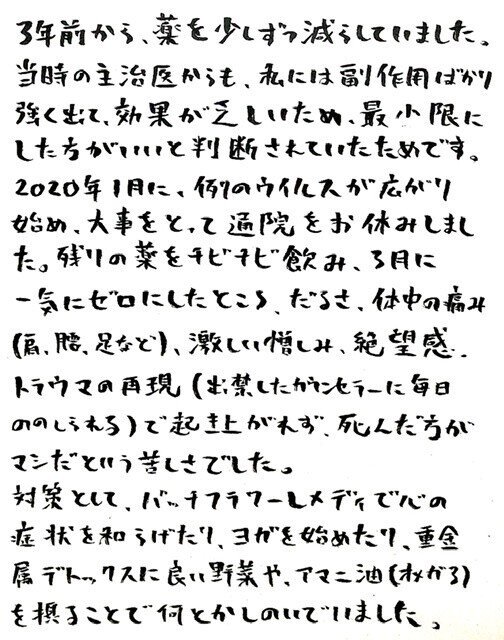 3年前から、薬を少しずつ減らしていました。
当時の主治医からも、私には副作用ばかり
強く出て、効果が乏しいため、最小限に
した方がいいと判断されていたためです。
2020年1月に、例のウイルスが広がり
始め、大事をとって通院をお休みしまし
た。残りの薬をチビチビ飲み、3月に
一気にゼロにしたところ、だるさ、体中の痛み
(肩、腰、足など)、激しい憎しみ、絶望感、
トラウマの再現(出禁したカウンセラーに毎日
ののしられる)で起き上がれず、死んだ方が
マシだという苦しさでした。
対策として、バッチフラワーレメディで心の
症状を和らげたり、ヨガを始めたり、重金
属デトックスに良い野菜や、アマニ油(オメガ3)
を摂ることで何とかしのいでいました。